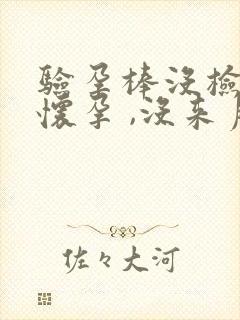 验孕棒没检
怀孕,没来
佐々大河